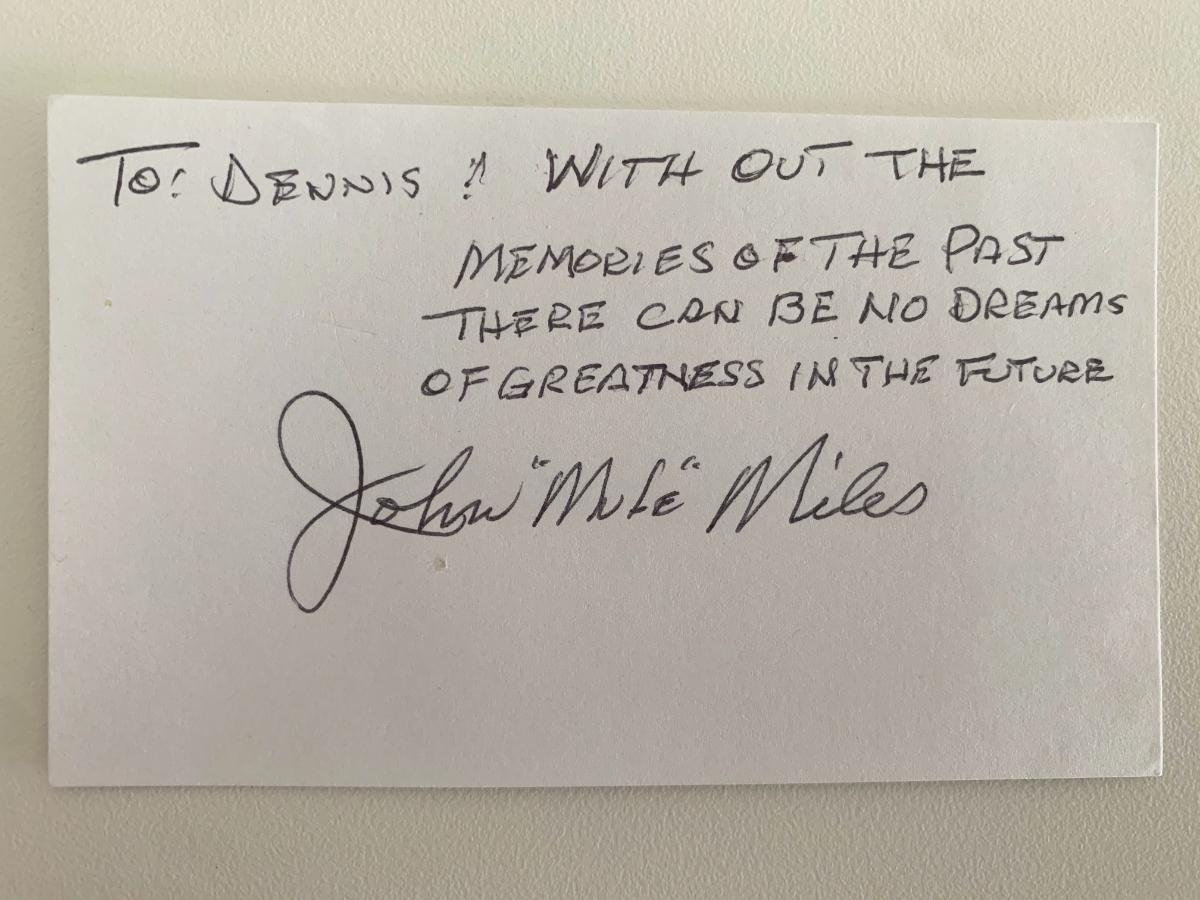 TO: DENNIS !! WITH OUT THE
MEMORIES OF THE PAST
THERE CAN BE NO DREAMS
OF GREATNESS IN THE FUTURE
John "Mule" Miles